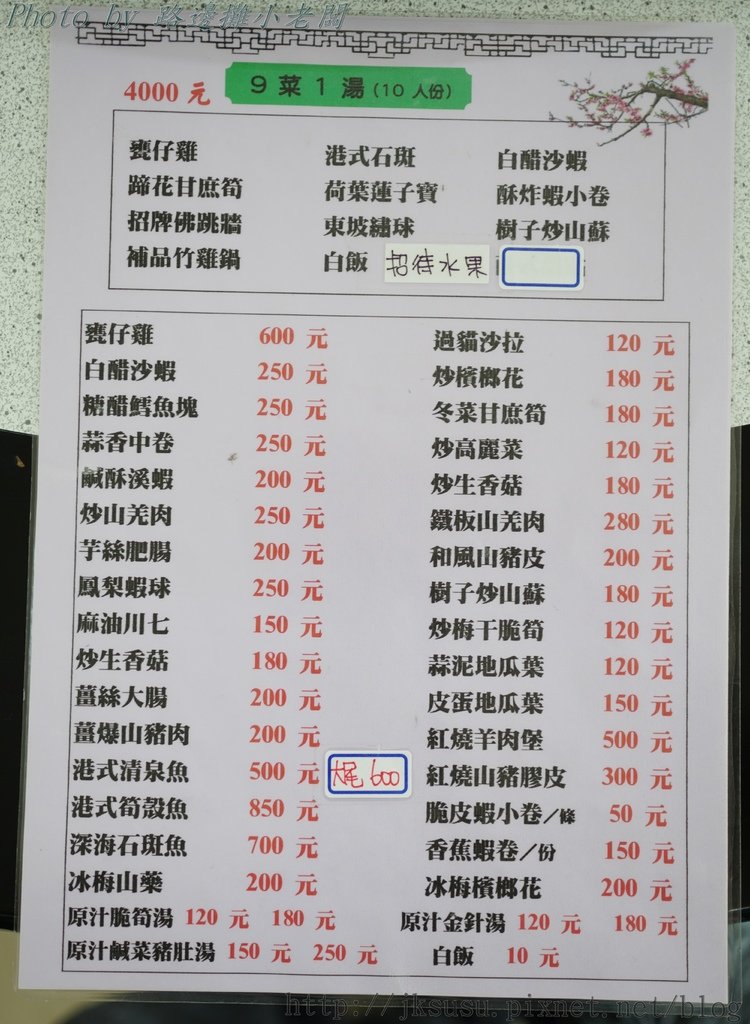 Photo by 路邊攤小老闆
4000 元 9 菜 1 湯 (10 人份)
甕仔雞 港式石斑 白醋沙蝦
蹄花甘庶筍 荷葉蓮子寶 酥炸蝦小卷
招牌佛跳牆 東坡繡球 樹子炒山蘇
補品竹雞鍋 白飯 招待水果
甕仔雞 600 元 過貓沙拉 120 元
白醋沙蝦 250 元 炒檳榔花 180 元
糖醋鱈魚塊 250 元 冬菜甘庶筍 180 元
蒜香中卷 250 元 炒高麗菜 120 元
鹹酥溪蝦 200 元 炒生香菇 180 元
炒山羌肉 250 元 鐵板山羌肉 280 元
芋絲肥腸 200 元 和風山豬皮 200 元
鳳梨蝦球 250 元 樹子炒山蘇 180 元
麻油川七 150 元 炒梅干脆筍 120 元
炒生香菇 180 元 蒜泥地瓜葉 120 元
薑絲大腸 200 元 皮蛋地瓜葉 150 元
薑爆山豬肉 200 元 紅燒羊肉煲 500 元
港式清泉魚 500 元 大尾 600 紅燒山豬膠皮 300 元
港式筍殼魚 850 元 脆皮蝦小卷/條 50 元
深海石斑魚 700 元 香蕉蝦卷/份 150 元
冰梅山藥 200 元 冰梅檳榔花 200 元
原汁脆筍湯 120 元 180 元 原汁金針湯 120 元 180 元
原汁鹹菜豬肚湯 150 元 250 元 白飯 10 元
http://jksusu.pixnet.net/blog